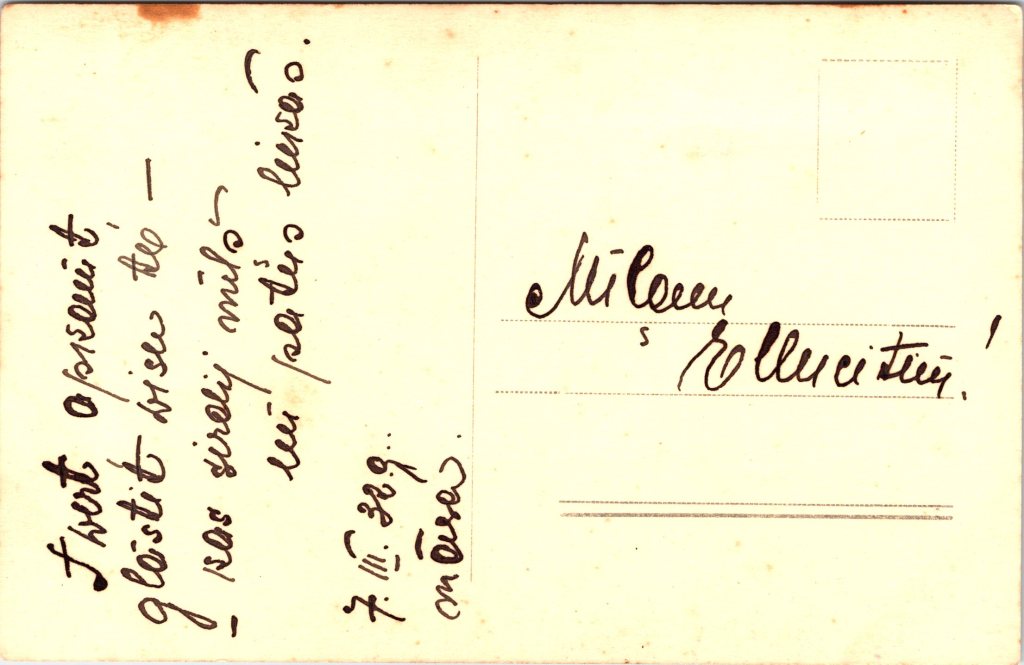 Twert apkamt
glāstīt wisu to —
— kas sirdij mīļš
un patīss liekas.
7. III. 32. g.
māsa.
Mīļam
Ellucītim!